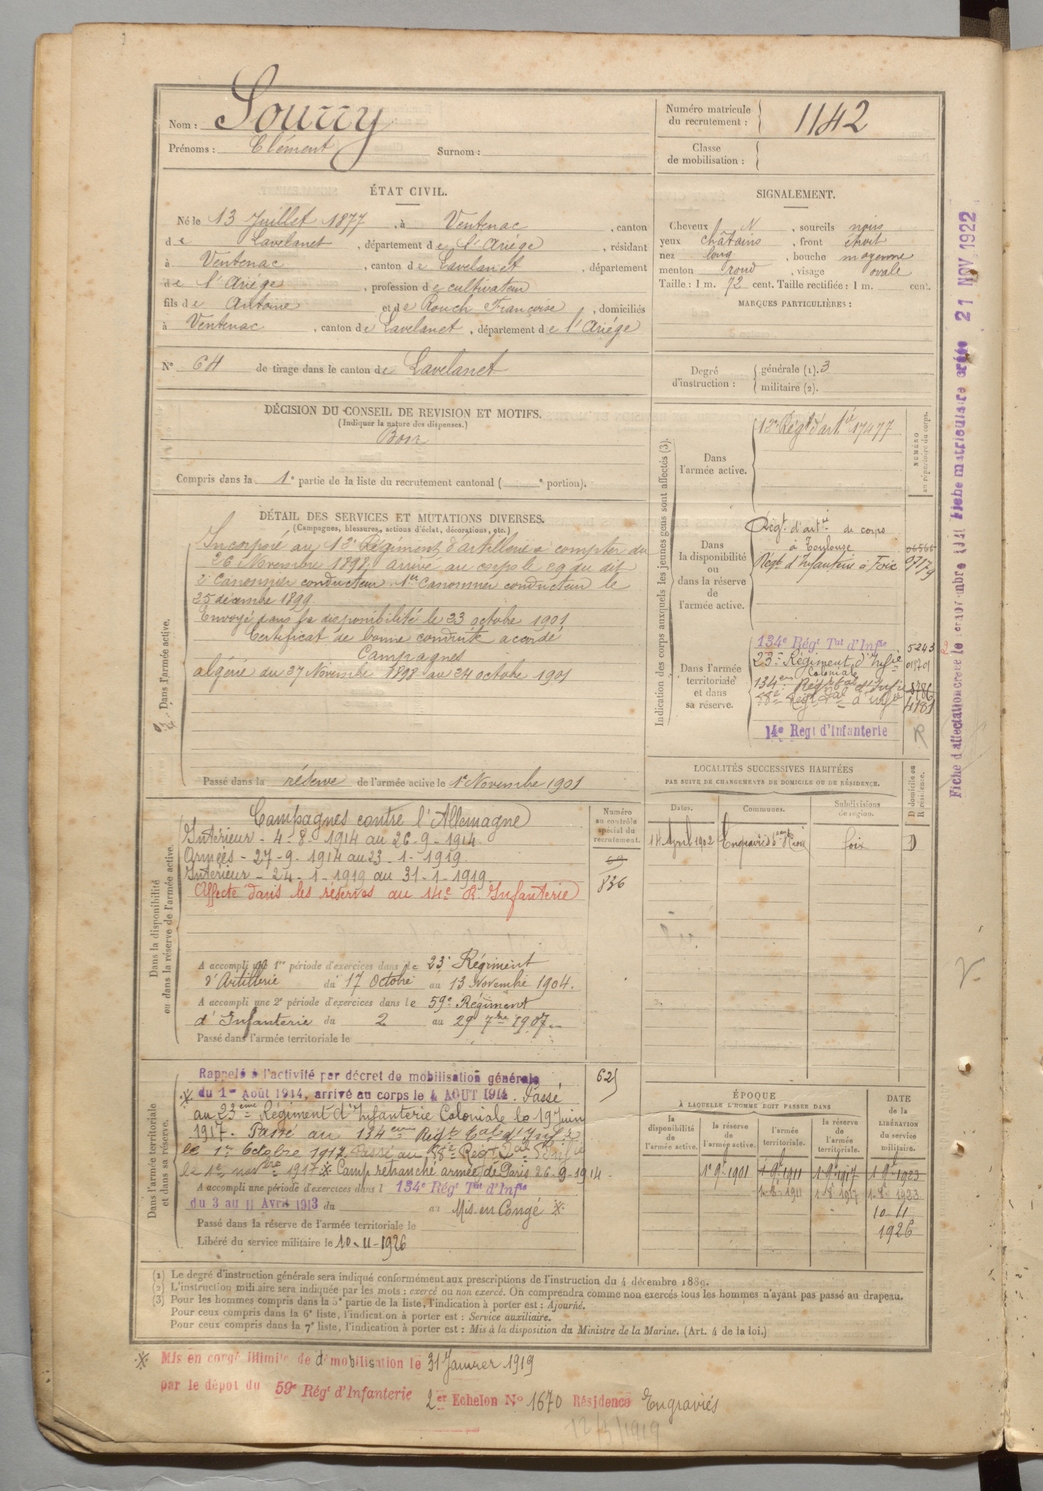 Nom : Sourry
Prénoms : Clément Surnom :
Numéro matricule du recrutement : 1142
Classe de mobilisation :
ÉTAT CIVIL.
Né le 13 Juillet 1877, à Ventenac, canton
de Lavelanet, département de l'Ariége, résidant
à Ventenac, canton de Lavelanet, département
de l'Ariége, profession de cultivateur
fils de Antoine et de Rouch Françoise, domiciliés
à Ventenac, canton de Lavelanet, département de l'Ariége
N° 64 de tirage dans le canton de Lavelanet
SIGNALEMENT.
Cheveux N, sourcils noirs
yeux châtains, front étroit
nez long, bouche moyenne
menton rond, visage ovale
Taille : 1 m. 72 cent. Taille rectifiée : 1 m. cent.
MARQUES PARTICULIÈRES :
Degré d'instruction : générale (1). 3
militaire (2).
DÉCISION DU CONSEIL DE REVISION ET MOTIFS.
(Indiquer la nature des dispenses.)
Bon
Compris dans la 1e partie de la liste du recrutement cantonal ( e portion).
DÉTAIL DES SERVICES ET MUTATIONS DIVERSES.
(Campagnes, blessures, actions d'éclat, décorations, etc.)
Dans l'armée active.
Incorporé au 13e Régiment d'artillerie a compter du
26 Novembre 1898, arrivé au corps le et du dit
2e Canonnier conducteur. 1er Canonnier conducteur le
25 décembre 1899
Envoyé dans la disponibilité le 23 octobre 1901
Certificat de bonne conduite accordé
Campagnes
algérie du 27 Novembre 1898 au 24 octobre 1901
Passé dans la réserve de l'armée active le 1er Novembre 1901
Indication des corps auxquels les jeunes gens sont affectés (3).
NUMÉRO au répertoire du corps.
Dans l'armée active.
13e Régt d'artie 17477
Dans la disponibilité ou dans la réserve de l'armée active.
Régt d'artie de corps
à Toulouse
Régt d'Infanterie à Foix
Dans l'armée territoriale et dans sa réserve.
134e Régt Tal d'Infie 5243
23e Régiment d'Infie
Colonial
134eme Rég Tal d'Infie
88e Régt Tal d'Infie 4181
14e Regt d'Infanterie R
LOCALITÉS SUCCESSIVES HABITÉES
PAR SUITE DE CHANGEMENTS DE DOMICILE OU DE RÉSIDENCE.
Dates. Communes. Subdivisions de région. D domicile ou R résidence.
14 April 1902 Foix D
Dans la disponibilité ou dans la réserve de l'armée active.
Campagnes contre l'Allemagne
Intérieur - 4-8-1914 au 26-9-1914
Armées - 27-9-1914 au 23-1-1919
Intérieur - 24-1-1919 au 31-1-1919
Affecté dans les réserves au 14e R. Infanterie
Numéro au contrôle spécial du recrutement.
836
A accompli une 1re période d'exercices dans le 23e Régiment
d'Artillerie du 17 Octobre au 13 Novembre 1904.
A accompli une 2e période d'exercices dans le 59e Régiment
d'Infanterie du 2 au 29 7bre 1907
Passé dans l'armée territoriale le
Dans l'armée territoriale et dans sa réserve.
Rappelé à l'activité par décret de mobilisation générale 625
du 1er Août 1914, arrivé au corps le 4 AOUT 1914. Passé
au 23eme Régiment d'Infanterie Coloniale le 19 Juin
1917. Passé au 134eme Régt Tal d'Infie
le 1er Octobre 1917 Passé au 88e Régt Tal Infie
le 1er novbre 1917 ※ Camp retranché armée de Paris 26-9-1914
A accompli une période d'exercices dans l 134e Régt Tal d'Infie
du 3 au 11 Avril 1913 du au Mis en Congé ※
Passé dans la réserve de l'armée territoriale le
Libéré du service militaire le 10-11-1926
ÉPOQUE
À LAQUELLE L'HOMME DOIT PASSER DANS
la disponibilité de l'armée active. la réserve de l'armée active. l'armée territoriale. la réserve de l'armée territoriale. DATE de la LIBÉRATION du service militaire.
1er 9e 1901 1-9-1911 1-9-1917 1-9-1923
1-8-1911 1-8-1917 1-8-1923
10-11
1926
(1) Le degré d'instruction générale sera indiqué conformément aux prescriptions de l'instruction du 4 décembre 1889.
(2) L'instruction militaire sera indiquée par les mots : exercé ou non exercé. On comprendra comme non exercés tous les hommes n'ayant pas passé au drapeau.
(3) Pour les hommes compris dans la 5e partie de la liste, l'indication à porter est : Ajourné.
Pour ceux compris dans la 6e liste, l'indication à porter est : Service auxiliaire.
Pour ceux compris dans la 7e liste, l'indication à porter est : Mis à la disposition du Ministre de la Marine. (Art. 4 de la loi.)
※ Mis en congé illimité de démobilisation le 31 Janvier 1919
par le dépôt du 59e Régt d'Infanterie 2er Echelon N° 1670 Résidence Engraviès
Fiche matriculaire créée 21 NOV 1922